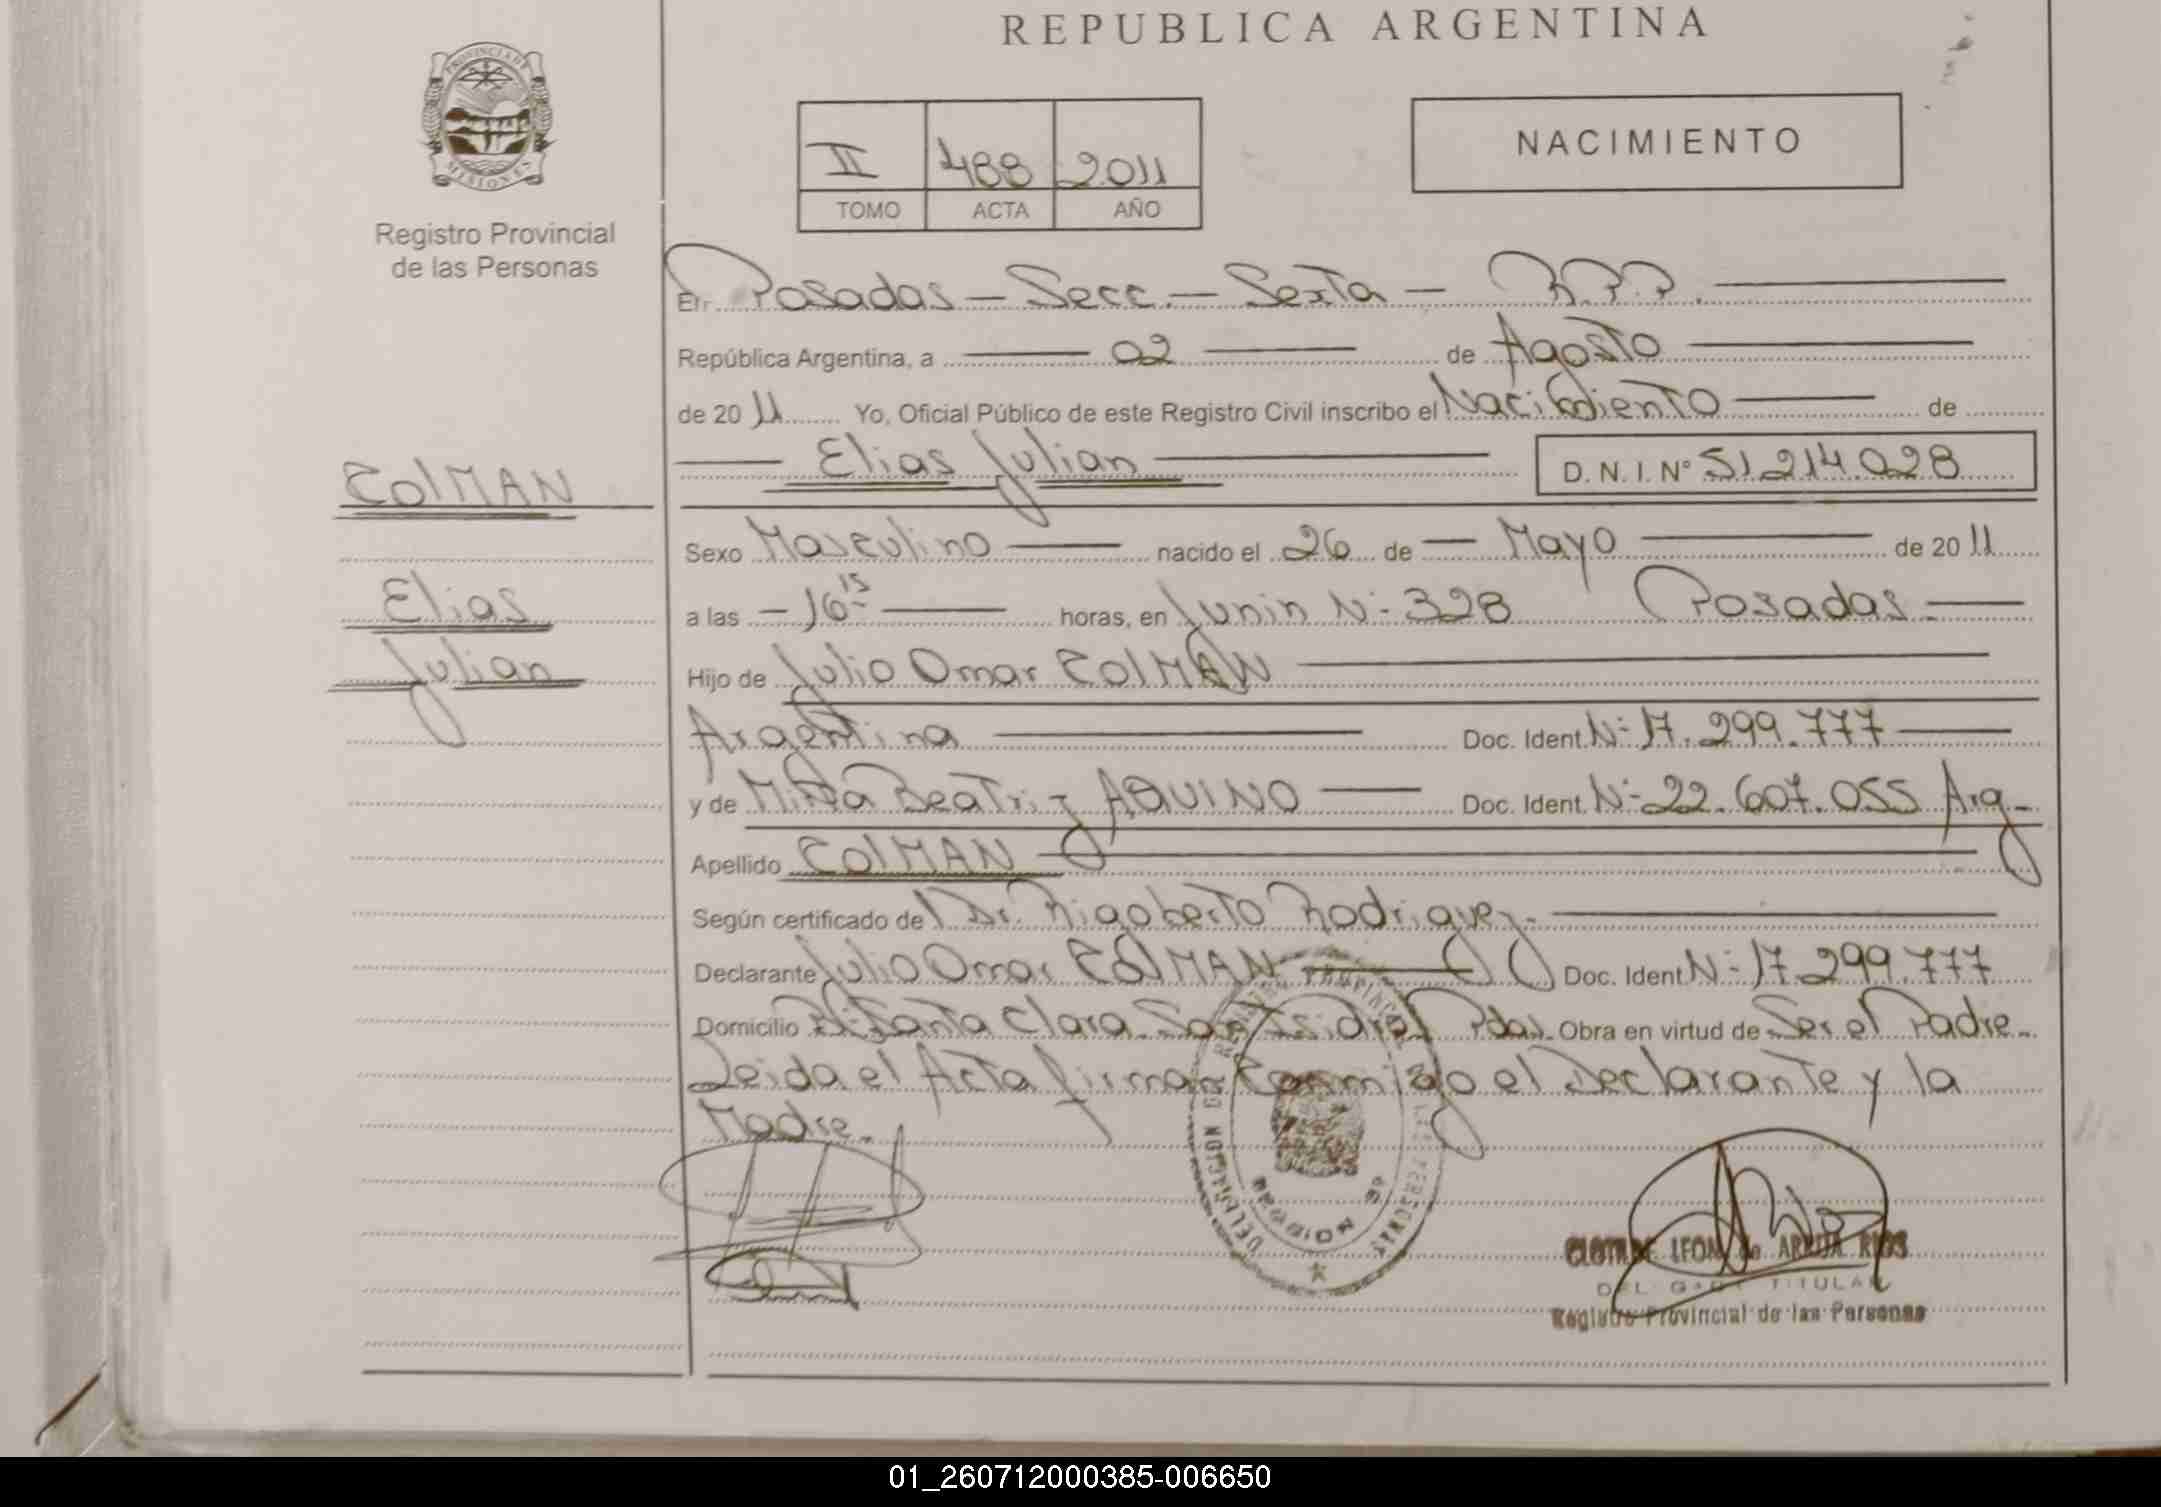 REPUBLICA ARGENTINA
PROVINCIA DE
MISIONES
Registro Provincial
de las Personas
II 488 2011
TOMO ACTA AÑO
NACIMIENTO
En Posadas - Secc. - Sexta - R.P.P.
República Argentina, a 02 de Agosto
de 2011 Yo, Oficial Público de este Registro Civil inscribo el Nacimiento de
Elias Julian D. N. I. N° 51.214.028
COlMAN
Elias
Julian
Sexo Masculino nacido el 26 de Mayo de 2011
a las 16 15 horas, en Junin N: 328 Posadas
Hijo de Julio Omar COlMAN
Argentina Doc. Ident. N: 17.299.777
y de Beatriz AQUINO Doc. Ident. N: 22.607.055 Arg
Apellido COlMAN
Según certificado de Dr. Rigoberto Rodriguez
Declarante Julio Omar COlMAN Doc. Ident N: 17.299.777
Domicilio Santa Clara San Isidro Pdas. Obra en virtud de Ser el Padre
Leida el Acta firman Conmigo el Declarante y la
Madre.
LEON de RIOS
TITULAR
Registro Provincial de las Personas
01_260712000385-006650